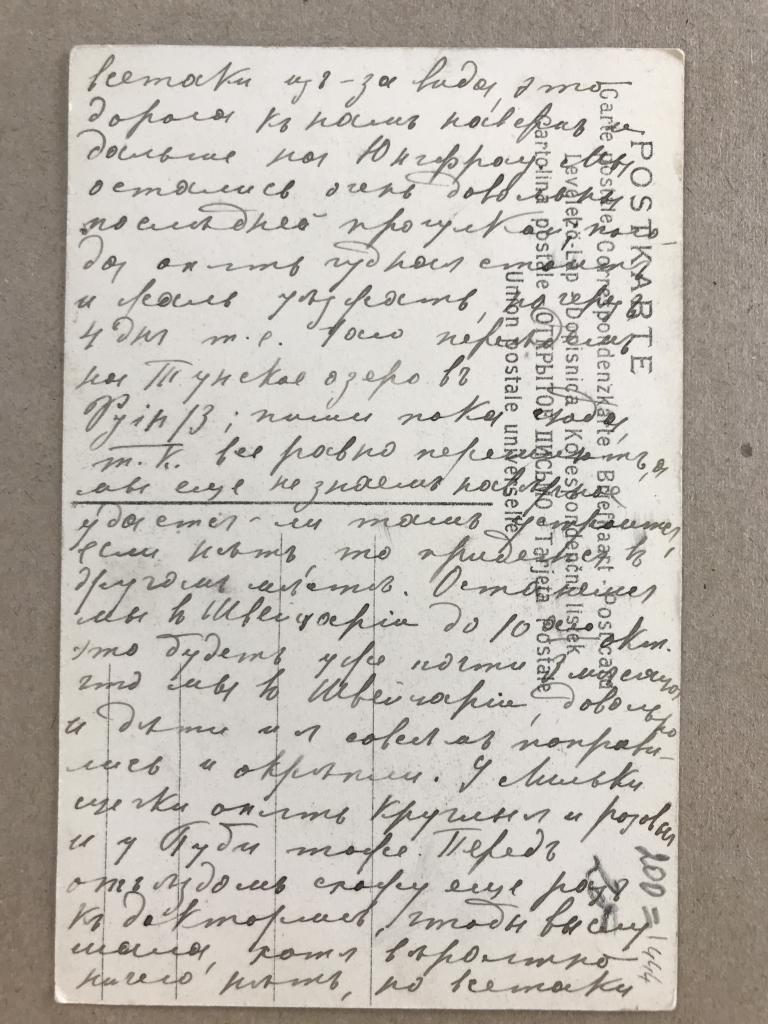 всетаки изъ-за вида, это
дорога къ намъ наверхъ и
дальше на Юнгфрау. Мы
остались очень довольны
послѣдней прогулкой, пого-
да опять чудная стоитъ
и жаль уѣзжать, но черезъ
4 дня т.е. 1ого переѣдемъ
на Тунское озеро въ
пиши пока сюда,
т.к. все равно перешлютъ, а
мы еще не знаемъ навѣрно
удастся-ли тамъ устроиться,
если нѣтъ, то придется въ
другомъ мѣстѣ. Останемся
мы въ Швейцаріи до 10ого окт.
это будетъ уже почти 3 мѣсяца
что мы въ Швейцаріи, довольно
и дѣти и я совсѣмъ поправи-
лись и окрѣпли. У Мильки
щечки опять круглыя и розовыя
и у Губи тоже. Передъ
отъѣздомъ схожу еще разъ
къ докторамъ, чтобы
хотя вѣроятно
ничего нѣтъ, но всетаки
POSTKARTE
Carte postale Correspondenzkarte Briefkaart Post card
Levelező-Lap Dopisnica Korespondenční lístek
Cartolina postale ОТКРЫТОЕ ПИСЬМО Tarjeta postale
Union postale universelle
200=
1444